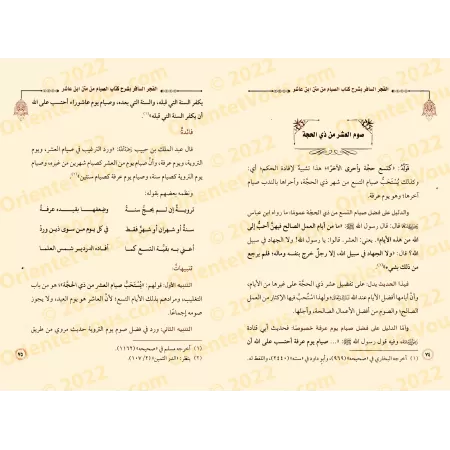 الفجر السافر بشرح كتاب الصيام من متن ابن عاشر
صوم العشر من ذي الحجة
قَوْلُهُ: «كتسع حجة وأحرى الآخر» هذا تشبيه لإفادة الحكم، أي:
وكذلك يُسْتَحَبُّ صيام التسع من شهر ذي الحجة، وآخرها بالندب صيام
آخرها وهو يوم عرفة.
والدليل على فضل صيام التسع من ذي الحجة عمومًا: ما رواه ابن عباس
قال: قال رسول الله ﷺ: «ما من أيام العمل الصالح فيهنَّ أحبُّ إلى
الله من هذه الأيام»، يعني: العشر. قالوا: يا رسول الله! ولا الجهاد في سبيل
الله؟ قال: «ولا الجهاد في سبيل الله، إلا رجلٌ خرج بنفسه وماله، فلم يرجع
من ذلك بشيء»
فهذا الحديث يدل على تفضيل عشر ذي الحجة على غيرها من الأيام،
وأنَّ أيامها أفضل الأيام عند الله ولهذا استُحبَّ فيها الإكثار من العمل
الصالح، والصوم من أفضل الأعمال الصالحة، وأجلها.
وأمَّا الدليل على فضل صيام يوم عرفة خصوصًا: فحديث أبي قتادة
وفيه قول رسول الله ﷺ: «... صيام يوم عرفة أحتسب على الله أن
(١) أخرجه البخاري في «صحيحه» (٩٦٩)، وأبو داود في «سننه» (٢٤٤٠)، واللفظ له.
٧٤
الفجر السافر بشرح كتاب الصيام من متن ابن عاشر
يكفر السنة التي قبله، والسنة التي بعده، وصيام يوم عاشوراء أحتسب على الله
أن يكفر السنة التي قبله»
فائدة:
قال عبد الملك بن حبيب: «ورد الترغيب في صيام العشر، ويوم
التروية، ويوم عرفة، وأنَّ صيام يوم من العشر كصيام شهرين من غيره، وصيام
يوم التروية كصيام سنة، وصيام يوم عرفة كصيام سنتين»
ونظمه بعضهم بقوله:
ترويةٌ إن لم يحجَّ سنة وضعفها بقيده عرفة
سنة أو شهران أو شهرٌ فقط في كل يوم من سوى ذين ورد
أعني به بقية التسع كما أفاده الدردير شمس العلما
تنبيهات:
التنبيه الأول: قولهم: «يُسْتَحَبُّ صيام العشر من ذي الحجة» هو من باب
التغليب، ومرادهم بذلك الأيام التسع؛ لأنَّ العاشر هو يوم العيد، ولا يجوز
صومه إجماعًا.
التنبيه الثاني: ورد في فضل صوم يوم التروية حديث مروي من طريق
(١) أخرجه مسلم في «صحيحه» (١١٦٢)
(٢) ينظر: «الدر الثمين» (١٥٧/٢).
٧٥
© 2022